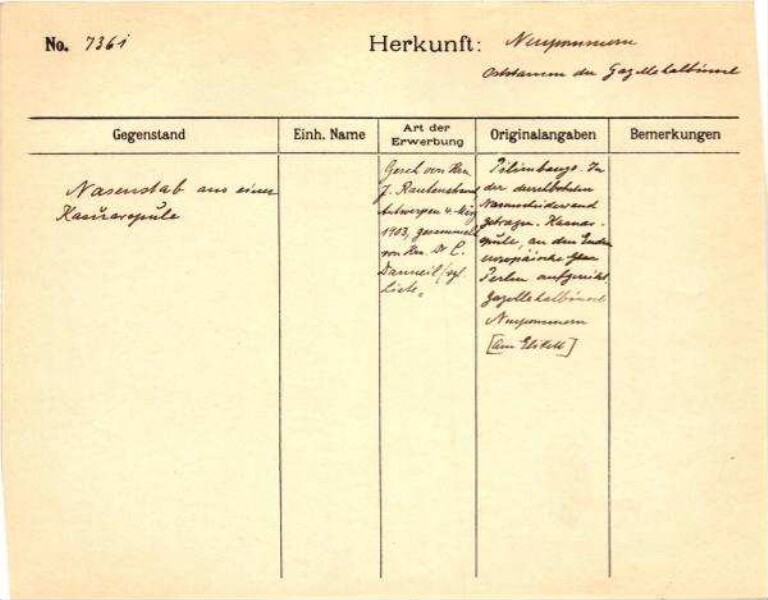 No. 7361
Herkunft: Neupommern
Oststamm der Gazellehalbinsel
Gegenstand
Einh. Name
Art der
Erwerbung
Originalangaben
Bemerkungen
Nasenstab aus einer
Kasuarspule
Gesch. von Hrn
J. Rautenstrauch
Antwerpen 4. März
1903, gesammelt
von Hrn. Dr C.
Danneil (vgl.
Liste.
In
der durchbohrten
Nasenscheidewand
getragen. Kasuar-
spule, an den Enden
europäische Glas
Perlen aufgereiht.
Gazellehalbinsel
Neupommern
[am